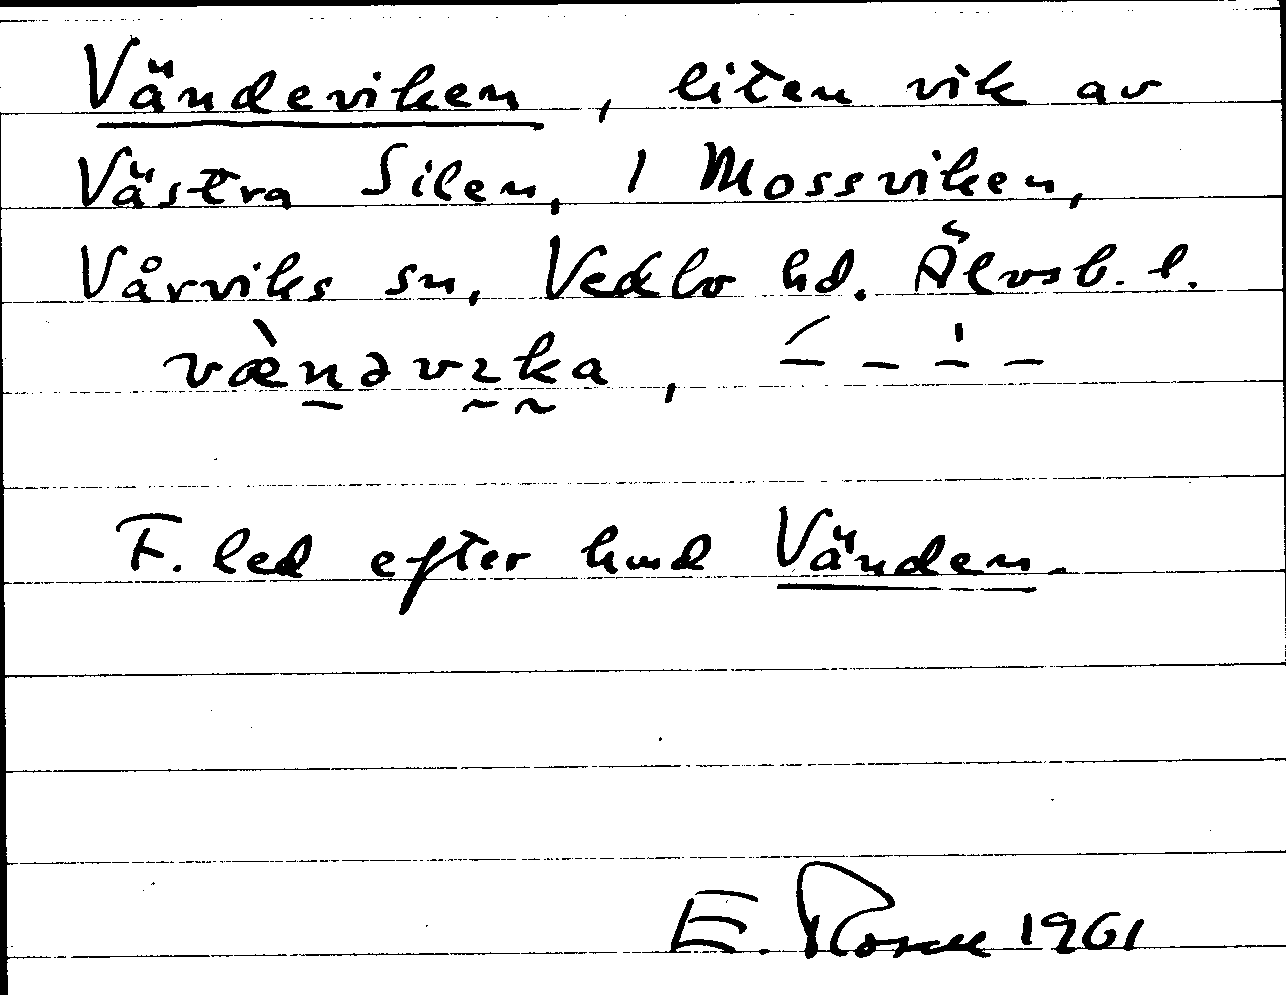 Vändeviken, liten vik av
Västra Silen, i Mossviken,
Vårviks sn, Vedbo hd. Älvsb. l.
væ̀nəvıka,
F. led efter hmd Vänden.
E. Rosell 1961